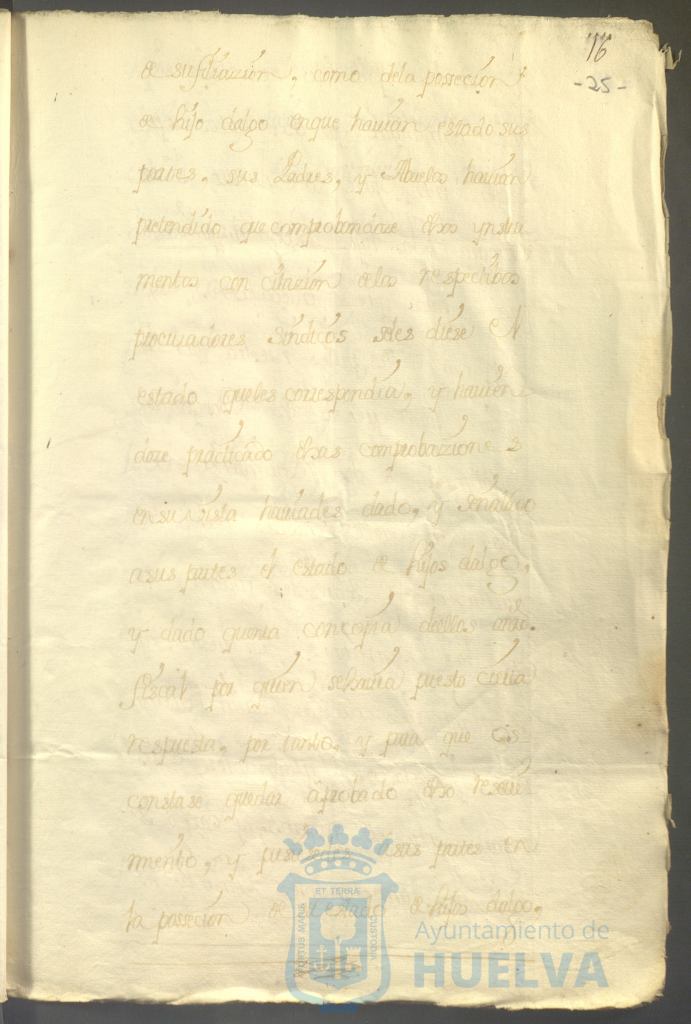 16
-25-
de su filiazion, como dela possecion
de hijo dalgo enque havian estado sus
partes, sus Padres, y Abuelos havian
pretendido que comprobandose dhos ynstru
mentos con citazion delos respectivos
procuradores sindicos seles diese el
estado queles correspondia, y havien
dose practicado dhas comprobaziones
en su vista haviades dado, y señalado
asus partes el estado de hijos dalgo,
y dado quenta con copia deellas al nrô.
fiscal por quien se havia puesto cierta
respuesta, por tanto, y para que os
constase quedar aprobado dho recivi
miento, y pusieredes asus partes en
la possecion de el estado de hijos dalgo,
PORTUS MARIS ET TERRÆ CUSTODIA
Ayuntamiento de
HUELVA